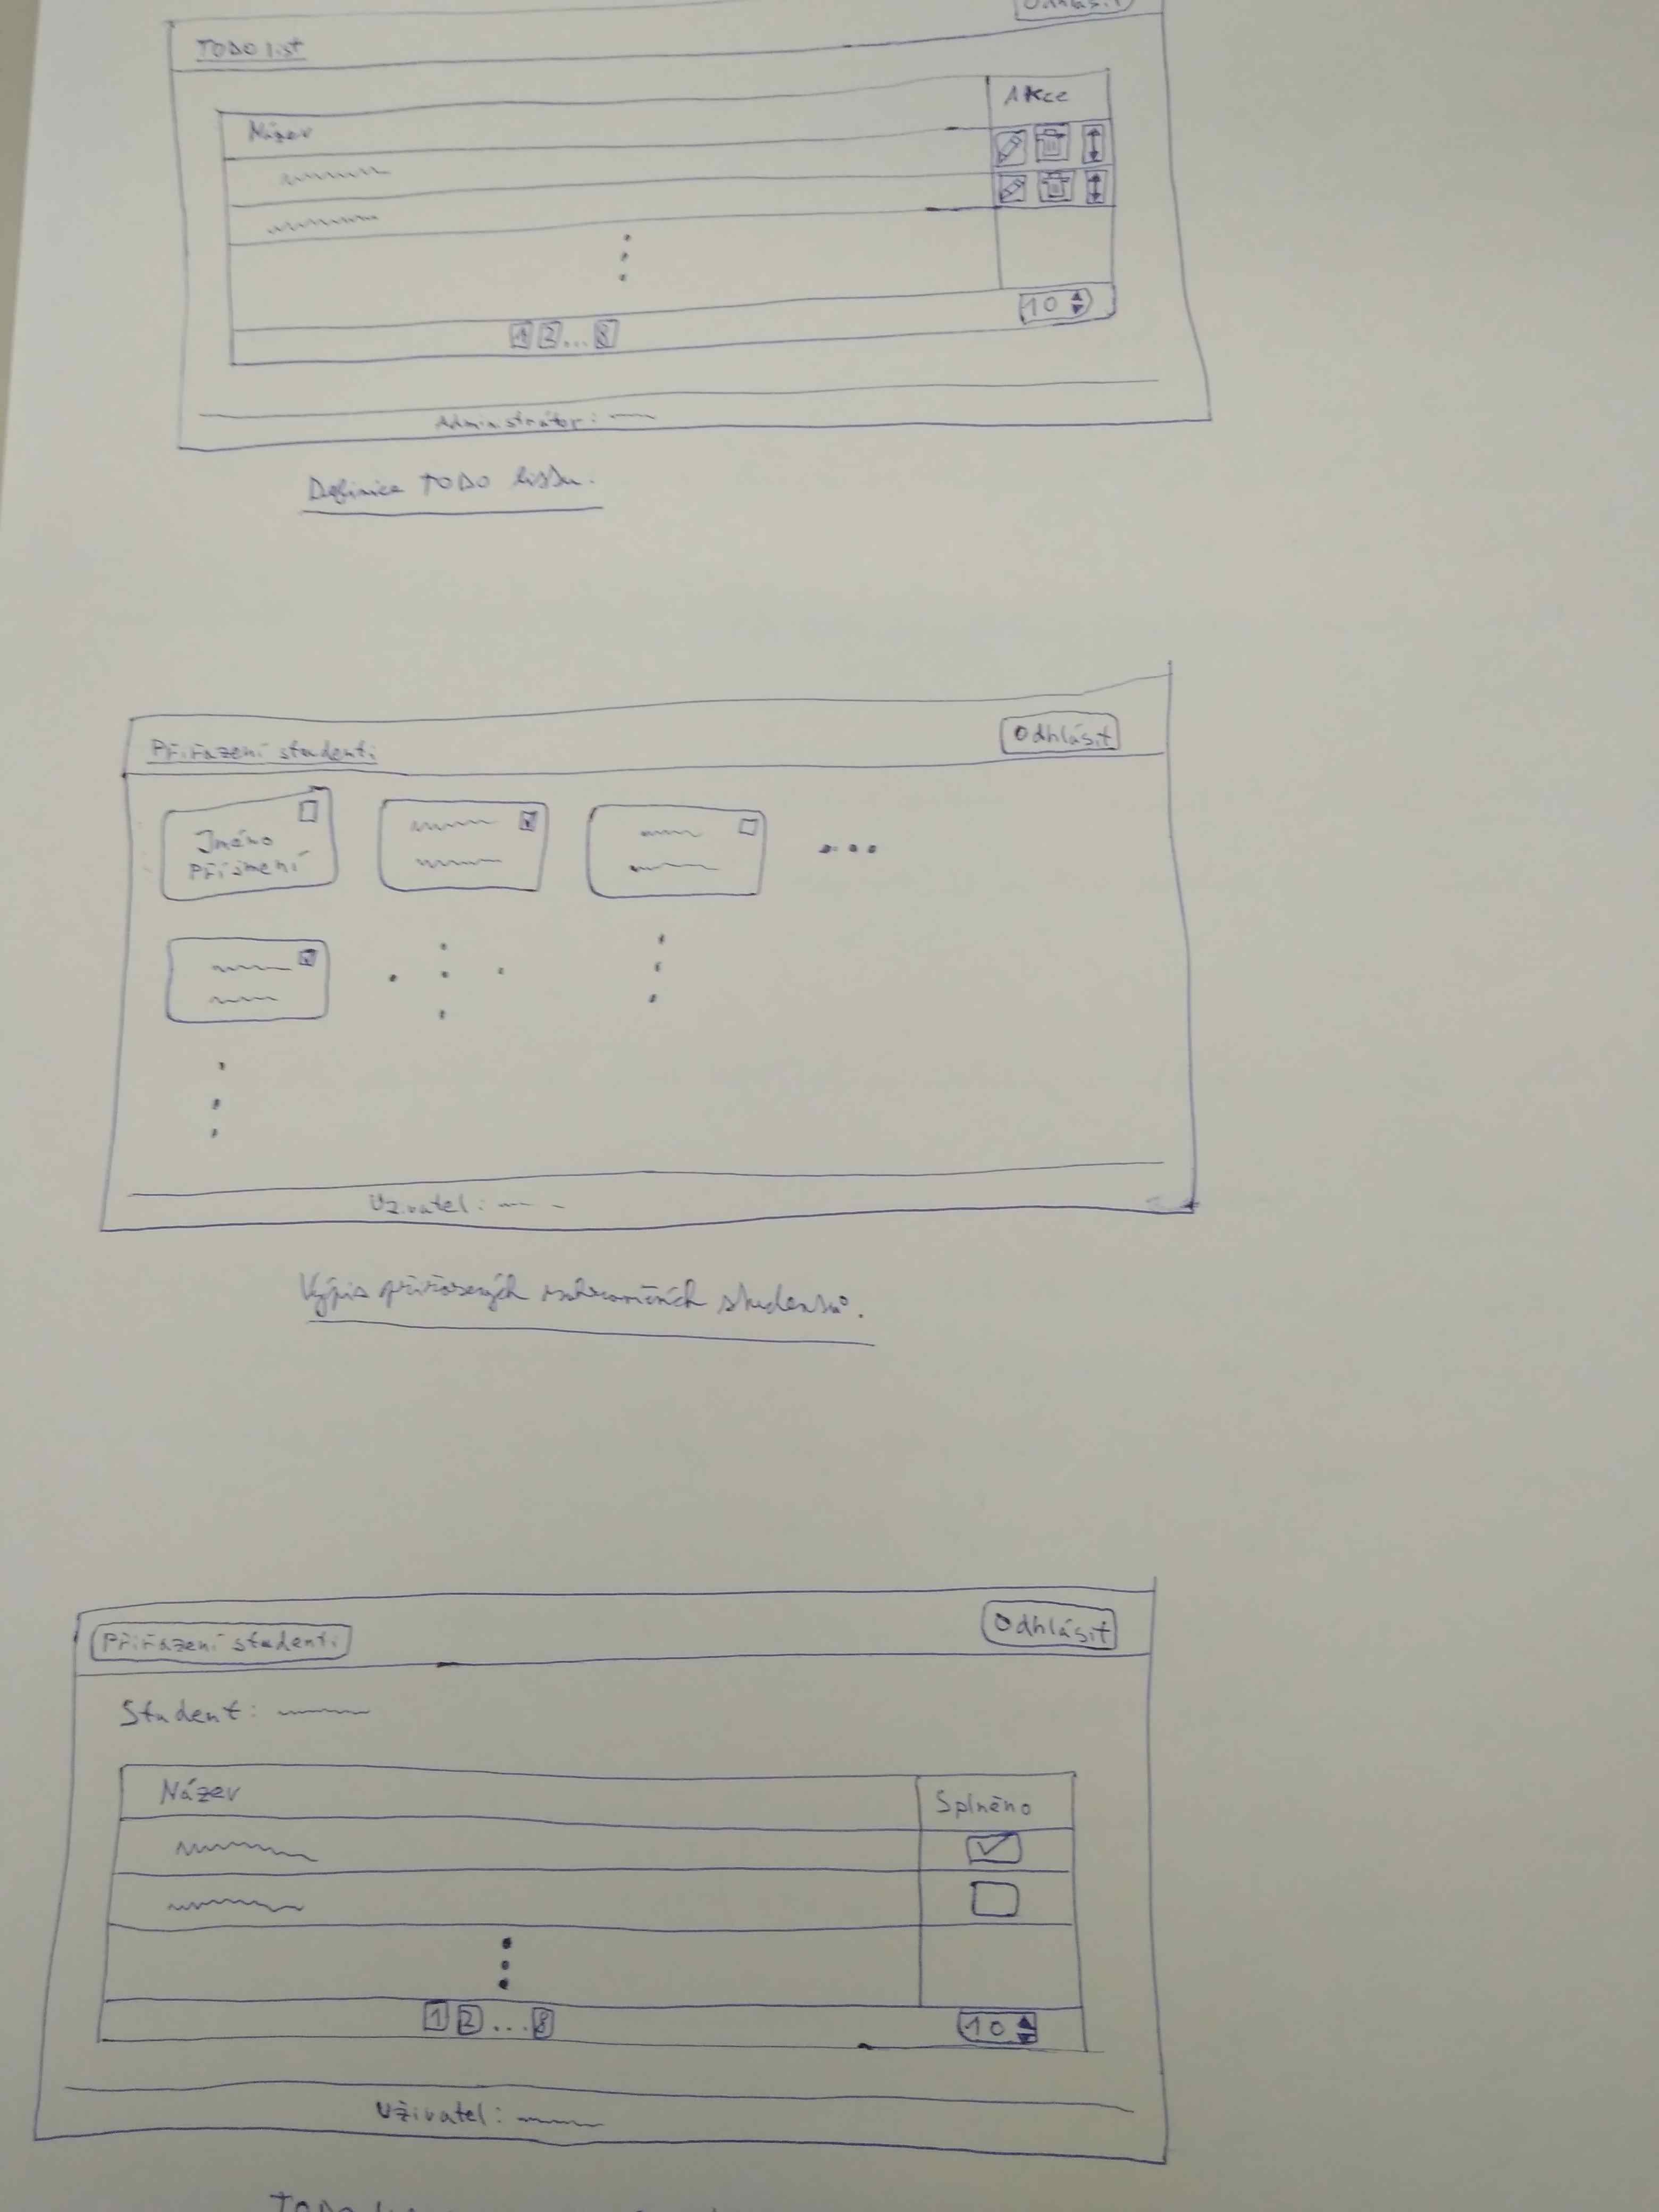 Odhlásit
TODO list
Název
Akce
10
1 2 ... 8
Administrátor:
Definice TODO listu.
Přiřazení studenti
Odhlásit
Jméno
Příjmení
Uživatel:
Výpis přiřazených zahraničních studentů.
Přiřazení studenti
Odhlásit
Student:
Název
Splněno
1 2 ... 8
10
Uživatel:
TODO